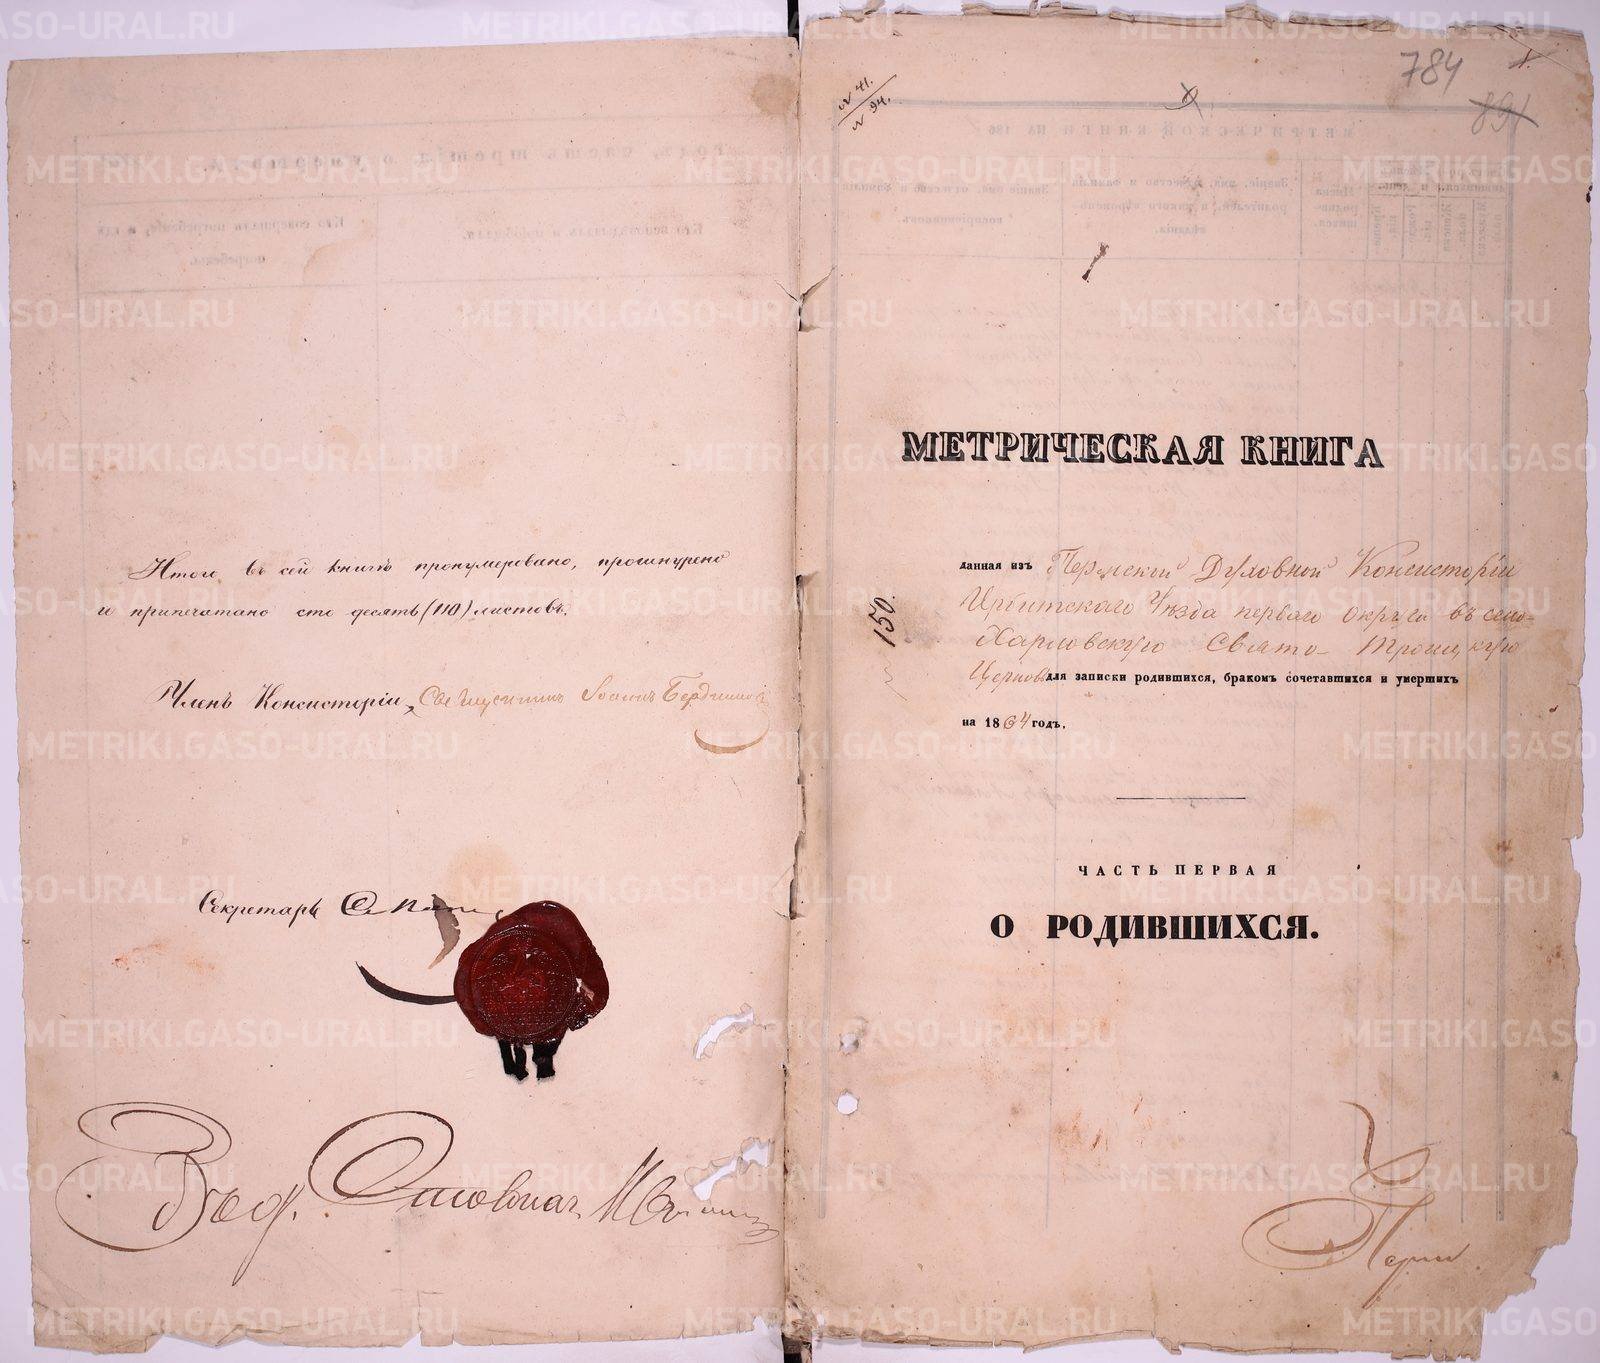 Итого въ сей книгѣ пронумеровано, прошнурено
и припечатано сто десять (110) листовъ.
Членъ Консисторіи, Священникъ Іоаннъ
Секретарь
784
891
№ 41.
№ 94.
МЕТРИЧЕСКАЯ КНИГА
данная изъ Пермской Духовной Консисторіи
Ирбитскаго Уѣзда перваго Округа въ село-
Харловскую Свято-Троицкую
Церковь для записки родившихся, бракомъ сочетавшихся и умершихъ
на 1864 годъ.
150.
ЧАСТЬ ПЕРВАЯ
О РОДИВШИХСЯ.
METRIKI.GASO-URAL.RU